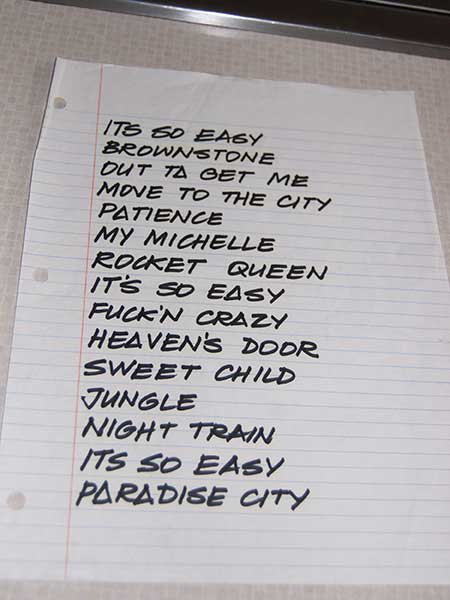 ITS SO EASY
BROWNSTONE
OUT TA GET ME
MOVE TO THE CITY
PATIENCE
MY MICHELLE
ROCKET QUEEN
IT'S SO EASY
FUCK'N CRAZY
HEAVEN'S DOOR
SWEET CHILD
JUNGLE
NIGHT TRAIN
ITS SO EASY
PARADISE CITY